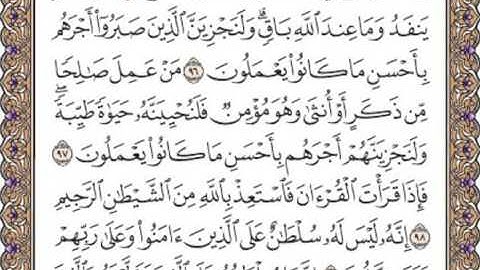 يَنفَدُ وَمَا عِندَ ٱللَّهِ بَاقٍۗ وَلَنَجْزِيَنَّ ٱلَّذِينَ صَبَرُوٓا۟ أَجْرَهُم
بِأَحْسَنِ مَا كَانُوا۟ يَعْمَلُونَ ٩٦ مَنْ عَمِلَ صَٰلِحًا
مِّن ذَكَرٍ أَوْ أُنثَىٰ وَهُوَ مُؤْمِنٌ فَلَنُحْيِيَنَّهُۥ حَيَوٰةً طَيِّبَةًۖ
وَلَنَجْزِيَنَّهُمْ أَجْرَهُم بِأَحْسَنِ مَا كَانُوا۟ يَعْمَلُونَ ٩٧
فَإِذَا قَرَأْتَ ٱلْقُرْءَانَ فَٱسْتَعِذْ بِٱللَّهِ مِنَ ٱلشَّيْطَٰنِ ٱلرَّجِيمِ
٩٨ إِنَّهُۥ لَيْسَ لَهُۥ سُلْطَٰنٌ عَلَى ٱلَّذِينَ ءَامَنُوا۟ وَعَلَىٰ رَبِّهِمْ